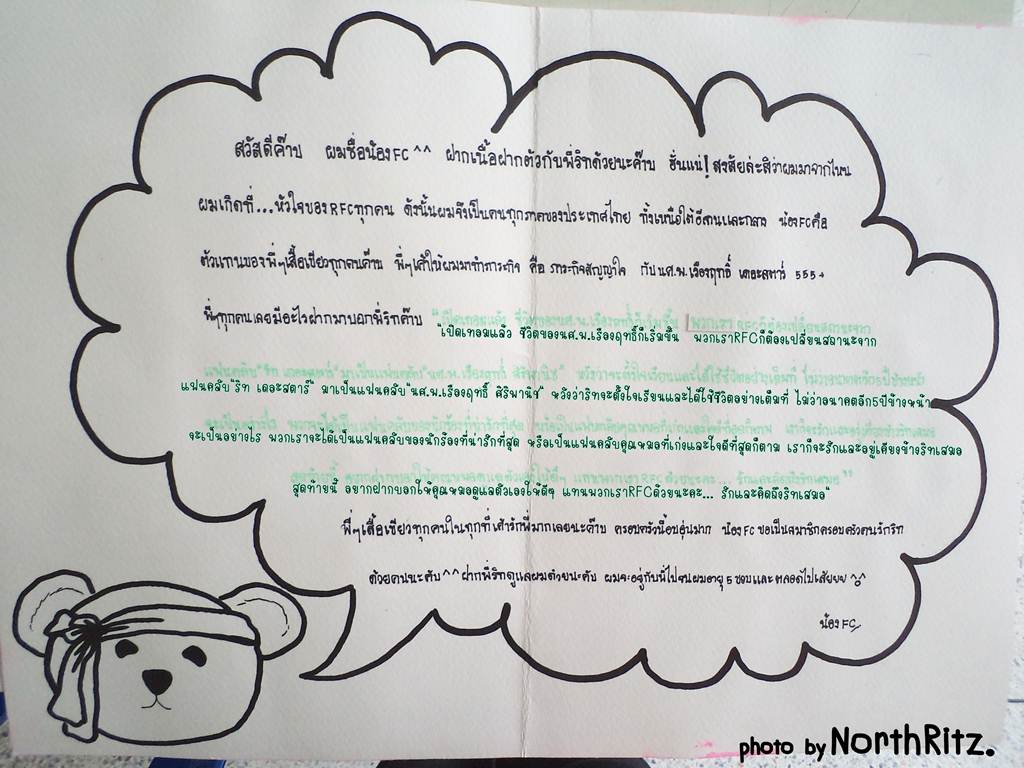 สวัสดีค๊าบ ผมชื่อน้องFC ^^ ฝากเนื้อฝากตัวกับพี่ริทด้วยนะค๊าบ ฮั่นแน่! สงสัยล่ะสิว่าผมมาจากไหน
ผมเกิดที่...หัวใจของRFCทุกคน ดังนั้นผมจึงเป็นคนทุกภาคของประเทศไทย ทั้งเหนือใต้อีสานและกลาง น้องFCคือ
ตัวแทนของพี่ๆเสื้อเขียวทุกคนค๊าบ พี่ๆเค้าให้ผมมาทำภาระกิจ คือ ภาระกิจสัญญาใจ กับนศ.พ.เรืองฤทธิ์ เดอะสตาร์ 555+
พี่ๆทุกคนเลยมีอะไรฝากมาบอกพี่ริทค๊าบ
"เปิดเทอมแล้ว ชีวิตของนศ.พ.เรืองฤทธิ์ก็เริ่มขึ้น พวกเราRFCก็ต้องเปลี่ยนสถานะจาก
แฟนคลับ"ริท เดอะสตาร์" มาเป็นแฟนคลับ"นศ.พ.เรืองฤทธิ์ ศิริพานิช" หวังว่าริทจะตั้งใจเรียนและได้ใช้ชีวิตอย่างเต็มที่ ไม่ว่าอนาคตอีก5ปีข้างหน้า
จะเป็นอย่างไร พวกเราจะได้เป็นแฟนคลับของนักร้องที่น่ารักที่สุด หรือเป็นแฟนคลับคุณหมอที่เก่งและใจดีที่สุดก็ตาม เราก็จะรักและอยู่เคียงข้างริทเสมอ
สุดท้ายนี้ อยากฝากบอกให้คุณหมอดูแลตัวเองให้ดีๆ แทนพวกเราRFCด้วยนะคะ... รักและคิดถึงริทเสมอ"
พี่ๆเสื้อเขียวทุกคนในทุกที่เค้ารักพี่มากเลยนะค๊าบ ครอบครัวนี้อบอุ่นมาก น้องFC ขอเป็นสมาชิกครอบครัวคนรักริท
ด้วยคนนะคับ ^^ ฝากพี่ริทดูแลผมด้วยนะคับ ผมจะอยู่กับพี่ไปจนผมอายุ 5 ขวบและตลอดไปเลยยย
น้องFC
photo by NorthRitz.